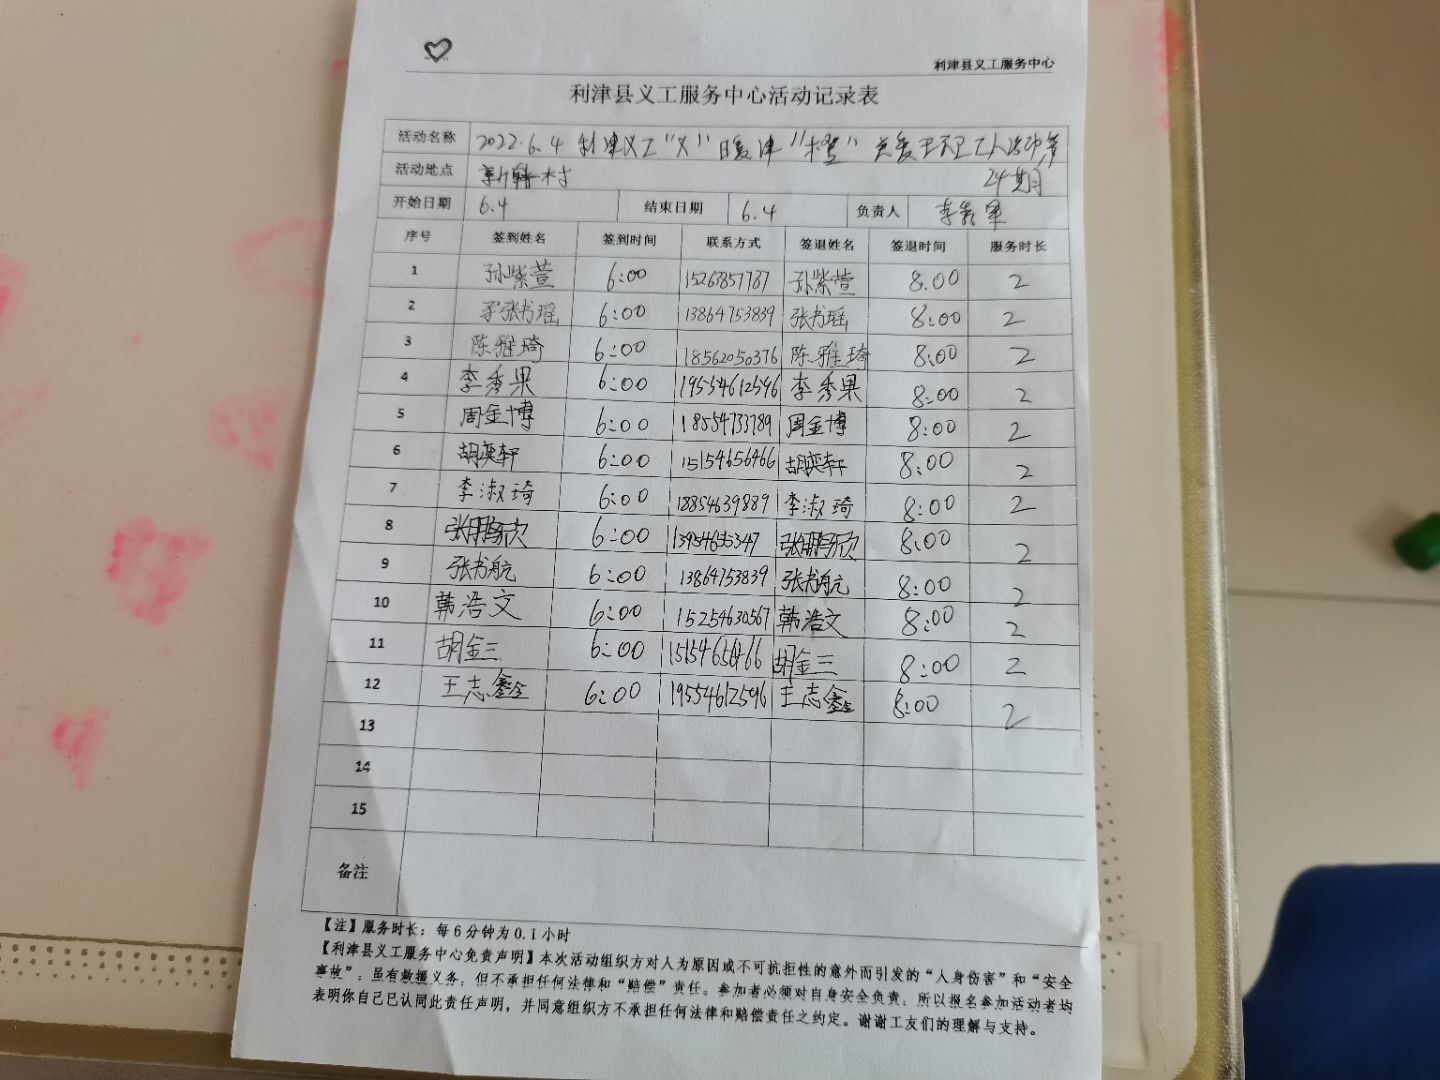 利津县义工服务中心
利津县义工服务中心活动记录表
活动名称 2022.6.4 利津义工“义”暖津“橙”关爱环卫工人活动第
活动地点 新韩村 24期
开始日期 6.4 结束日期 6.4 负责人 李秀果
序号 签到姓名 签到时间 联系方式 签退姓名 签退时间 服务时长
1 孙紫萱 6:00 15263857787 孙紫萱 8:00 2
2 张书瑶 6:00 13864753839 张书瑶 8:00 2
3 陈雅琦 6:00 18562050376 陈雅琦 8:00 2
4 李秀果 6:00 19554612596 李秀果 8:00 2
5 周金博 6:00 18554733789 周金博 8:00 2
6 胡奕轩 6:00 15154656466 胡奕轩 8:00 2
7 李淑琦 6:00 18854639889 李淑琦 8:00 2
8 张鹏欣 6:00 张鹏欣 8:00 2
9 张书航 6:00 13864753839 张书航 8:00 2
10 韩浩文 6:00 15254630567 韩浩文 8:00 2
11 胡金三 6:00 15154656466 胡金三 8:00 2
12 王志鑫 6:00 19554612596 王志鑫 8:00 2
13
14
15
备注
【注】服务时长：每6分钟为0.1小时
【利津县义工服务中心免责声明】本次活动组织方对人为原因或不可抗拒性的意外而引发的“人身伤害”和“安全
事故”：虽有救援义务，但不承担任何法律和“赔偿”责任。参加者必须对自身安全负责；所以报名参加活动者均
表明你自己已认同此责任声明，并同意组织方不承担任何法律和赔偿责任之约定。谢谢工友们的理解与支持。